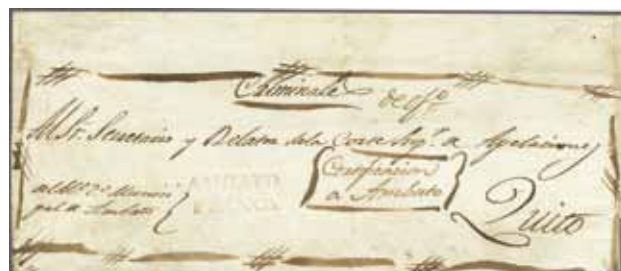 Criminales de offo
Al Sr. Secretario y Relator de la Corte Supr. de Apelaciones
Certificacion
a Ambato
del Alce. 2o. Munici
pal de Ambato
Quito